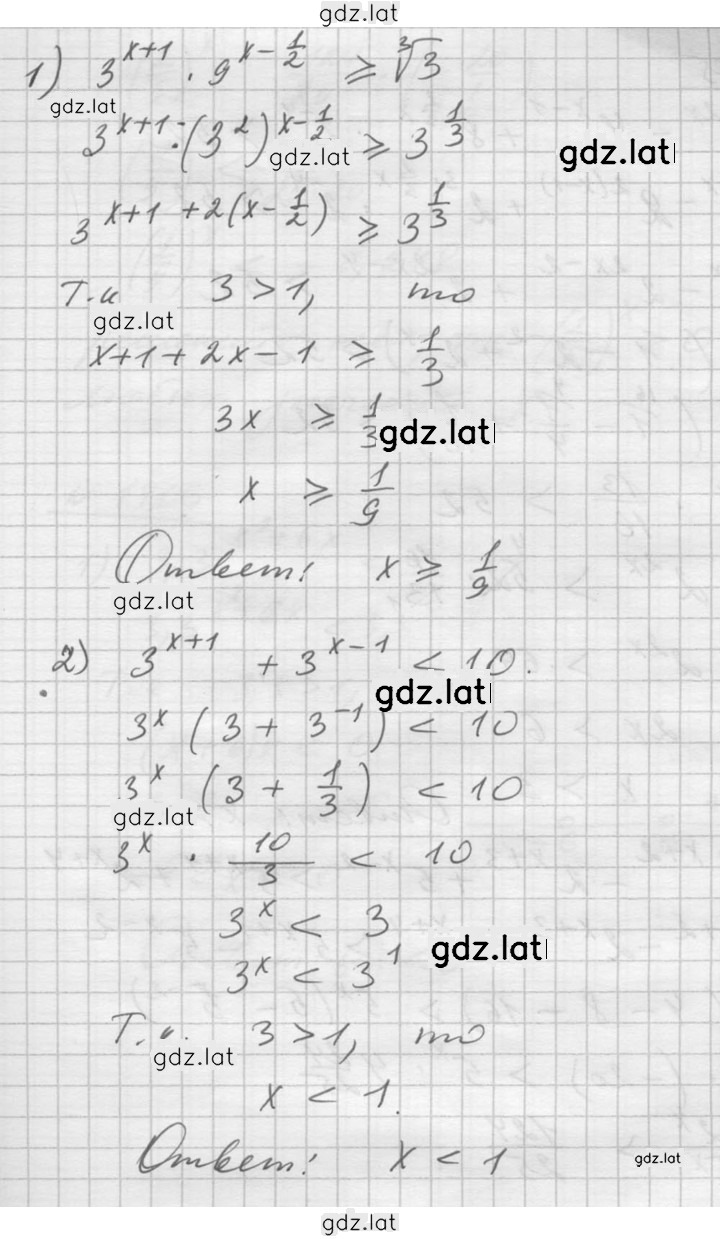 gdz.lat
1) 3^(x+1) · 9^(x-1/2) ⩾ ∛3
gdz.lat
3^(x+1) · (3^2)^(x-1/2) ⩾ 3^(1/3)
gdz.lat gdz.lat
3^(x+1+2(x-1/2)) ⩾ 3^(1/3)
Т.к 3 > 1, то
gdz.lat
x+1+2x-1 ⩾ 1/3
3x ⩾ 1/3
gdz.lat
x ⩾ 1/9
Ответ: x ⩾ 1/9
gdz.lat
2) 3^(x+1) + 3^(x-1) < 10.
gdz.lat
3^x (3 + 3^(-1)) < 10
3^x (3 + 1/3) < 10
gdz.lat
3^x · 10/3 < 10
3^x < 3
gdz.lat
3^x < 3^1
Т.к. 3 > 1, то
gdz.lat
x < 1.
Ответ: x < 1
gdz.lat
gdz.lat